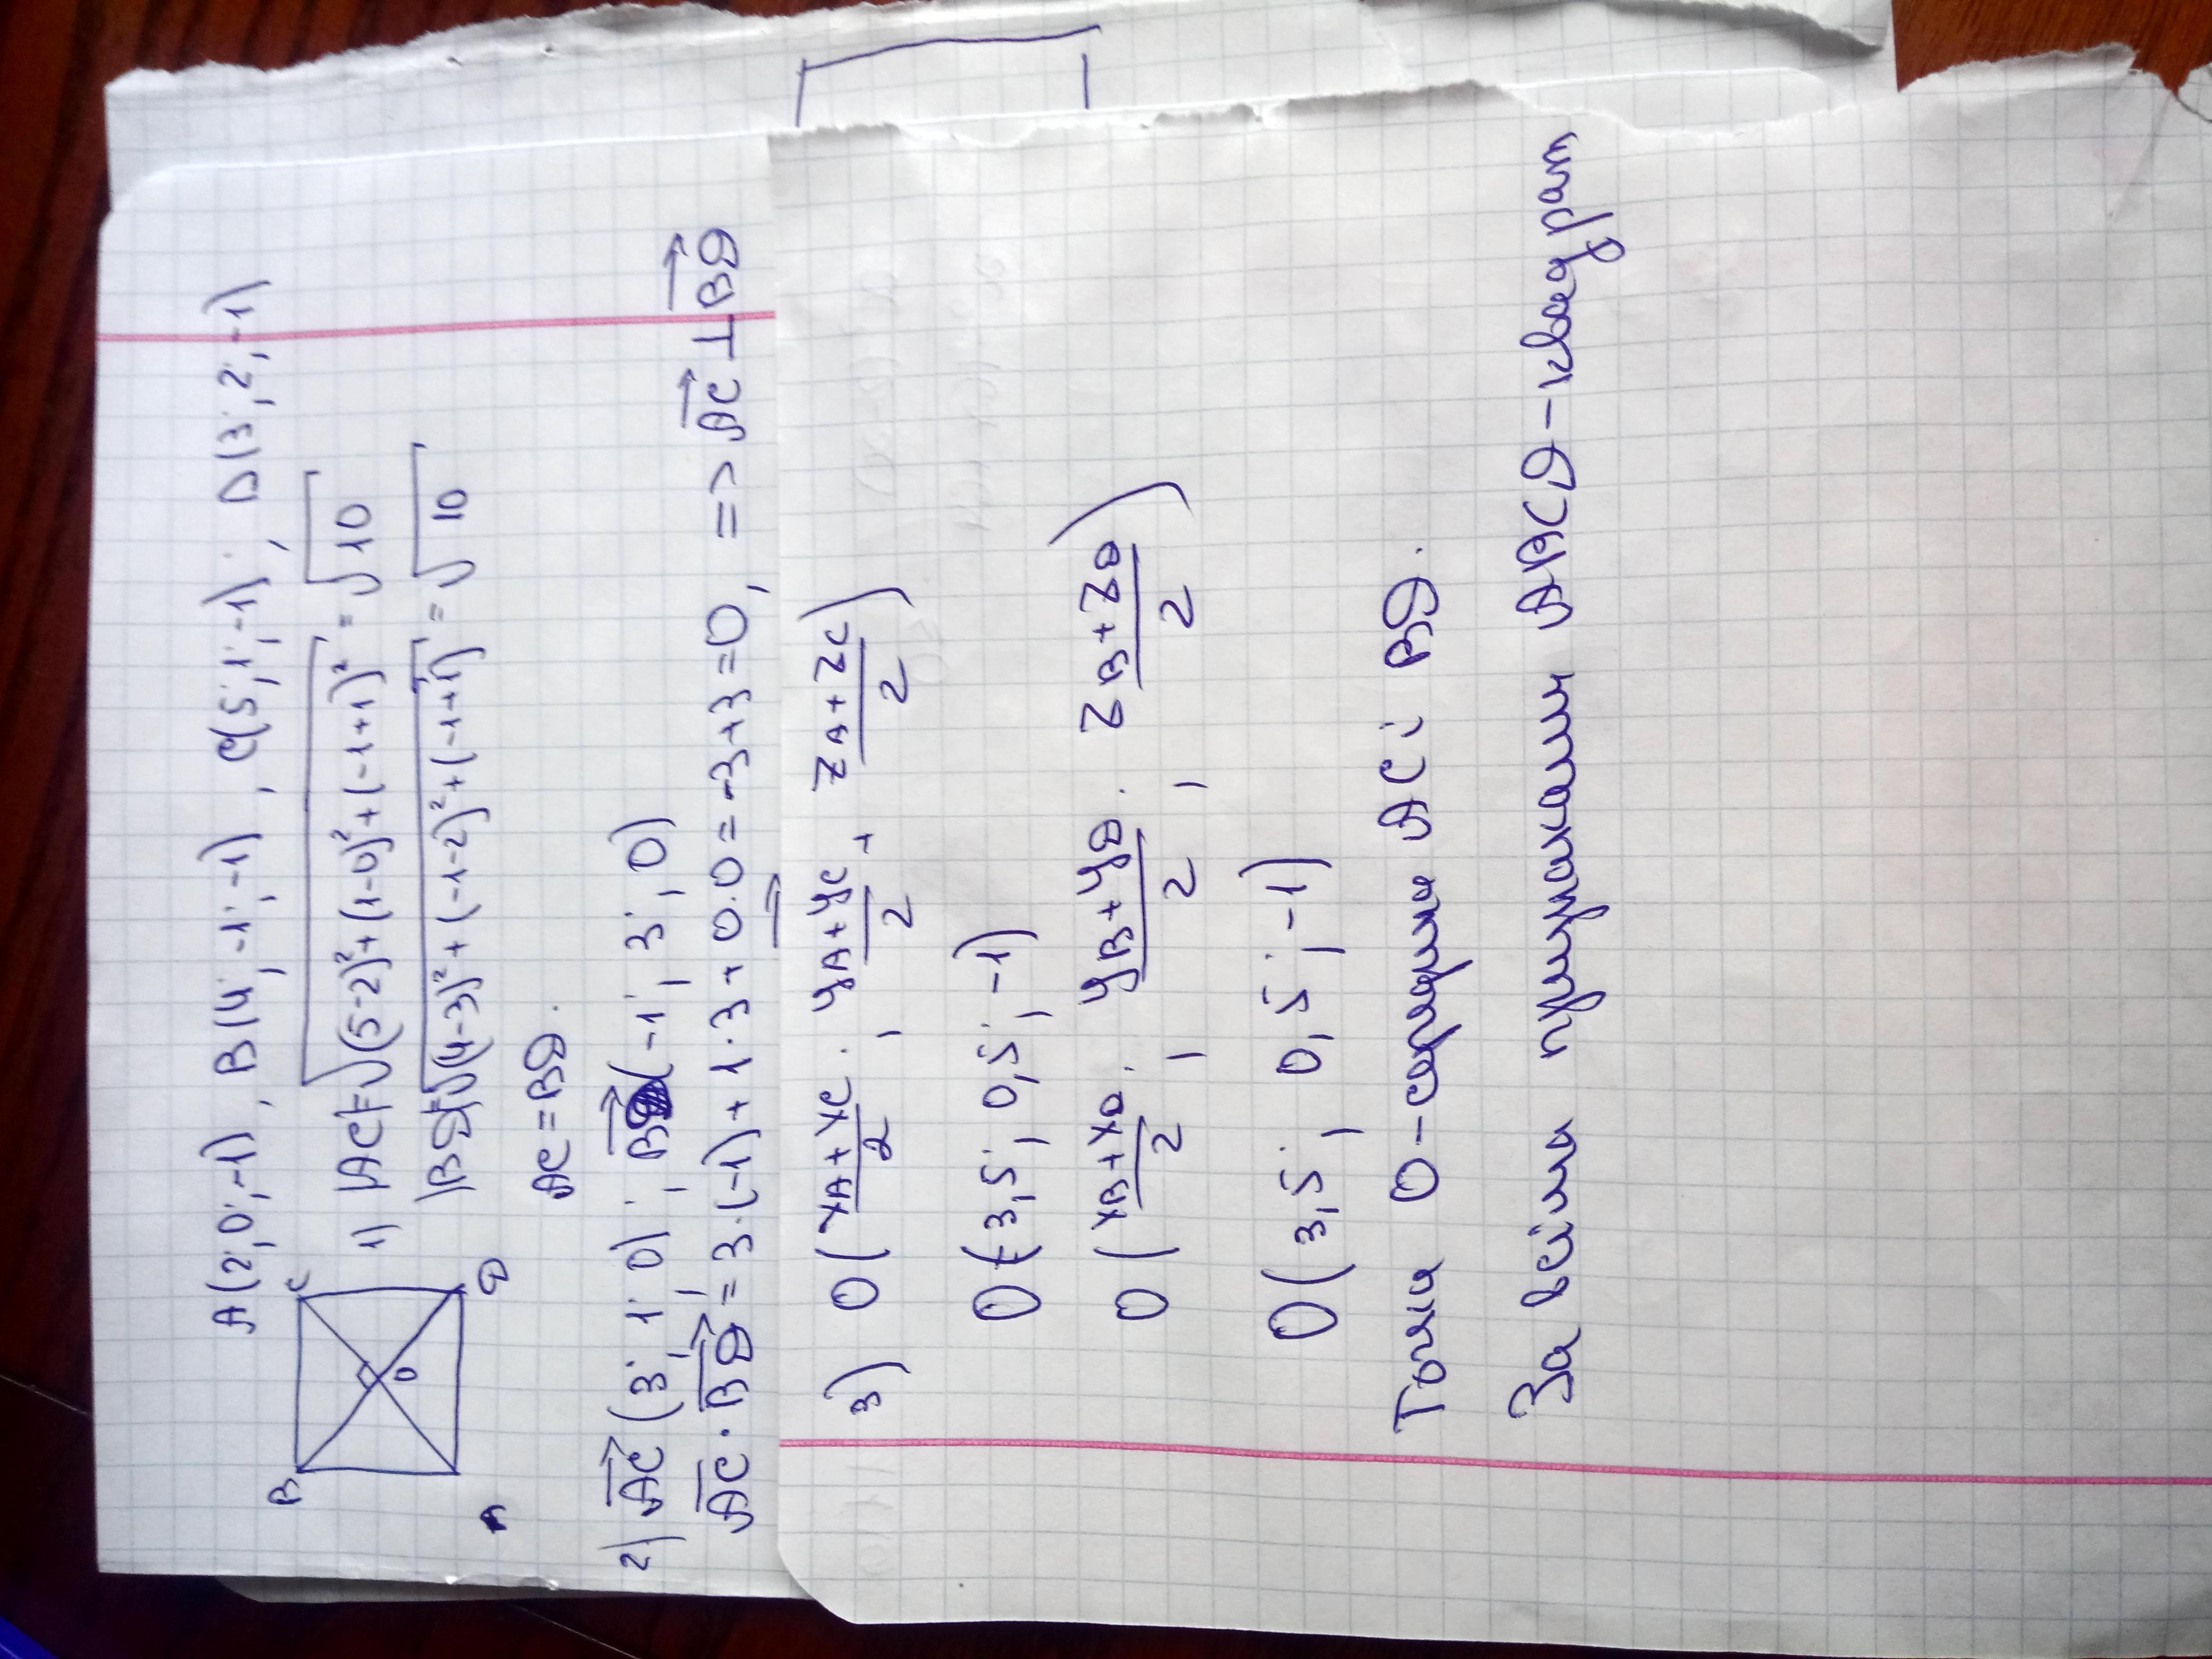 A(2;0;-1), B(4;-1;-1), C(5;1;-1), D(3;2;-1)
B C
O
A D
1) |AC|=√((5-2)²+(1-0)²+(-1+1)²)=√10
|BD|=√((4-3)²+(-1-2)²+(-1+1)²)=√10
AC=BD.
2) AC(3;1;0); BD(-1;3;0)
AC·BD=3·(-1)+1·3+0·0=-3+3=0, => AC⊥BD
3) O((xA+xC)/2; (yA+yC)/2; (zA+zC)/2)
O(3,5; 0,5; -1)
O((xB+xD)/2; (yB+yD)/2; (zB+zD)/2)
O(3,5; 0,5; -1)
Точки O-середини AC і BD.
За всіма пунктами ABCD-квадрат